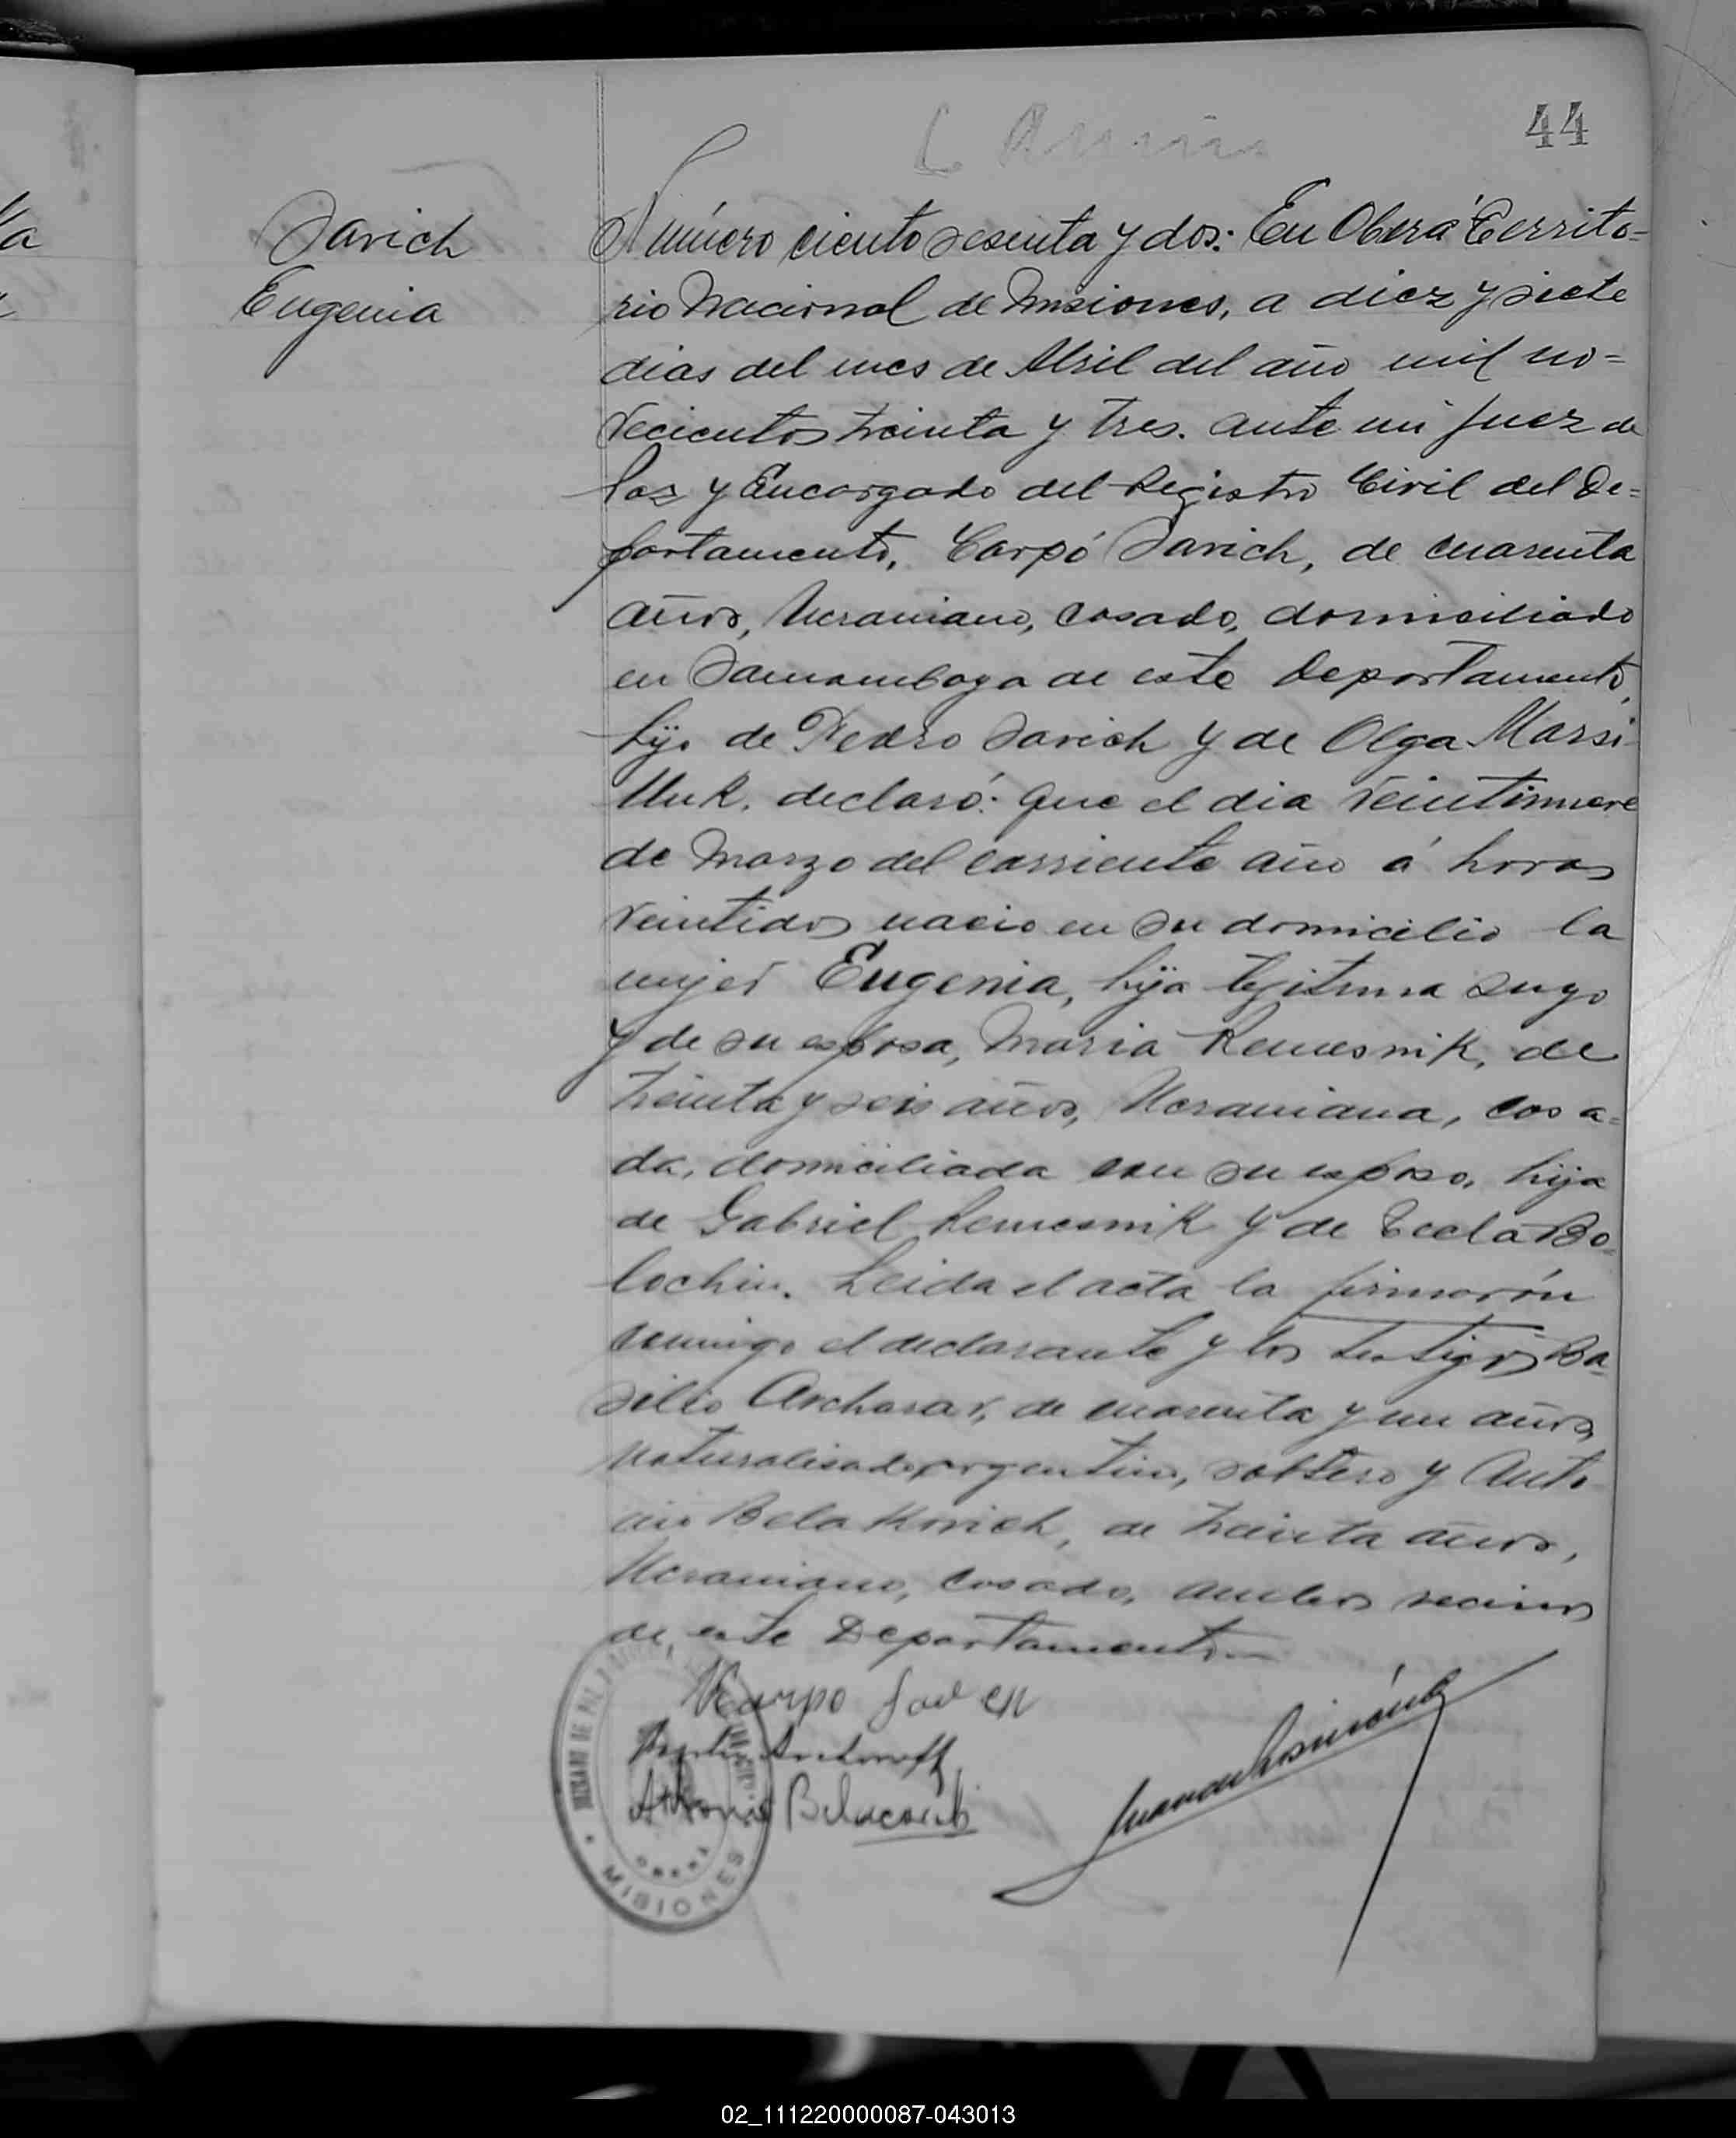 44
Savich
Eugenia
Número ciento sesenta y dos: En Oberá Territo-
rio Nacional de Misiones, a diez y siete
dias del mes de Abril del año mil no=
vecientos treinta y tres. ante mi Juez de
Paz y Encargado del Registro Civil del De=
partamento, Carpó Savich, de cuarenta
años, Ucraniano, casado, domiciliado
en Samambaya de este Departamento,
hijo de Pedro Savich y de Olga Marsi
lluk, declaró: Que el dia veintinueve
de Marzo del corriente año á horas
veintidos nacio en su domicilio la
mujer Eugenia, hija legitima suya
y de su esposa, Maria Remesnik, de
treinta y seis años, Ucraniana, cas a=
da, domiciliada con su esposo, hija
de Gabriel Remesnik y de Tecla Bo=
lochin. Leida el acta la firmarón
conmigo el declarante y los testigos Ba=
silio Archarav, de cuarenta y un años,
naturalisado argentino, soltero y Anto
nio Belakovich, de treinta años,
Ucraniano, casado, ambos vecinos
de este Departamento.—
Karpo
Antonio Belacovich
JUZGADO DE PAZ
OBERA
MISIONES
02_111220000087-043013